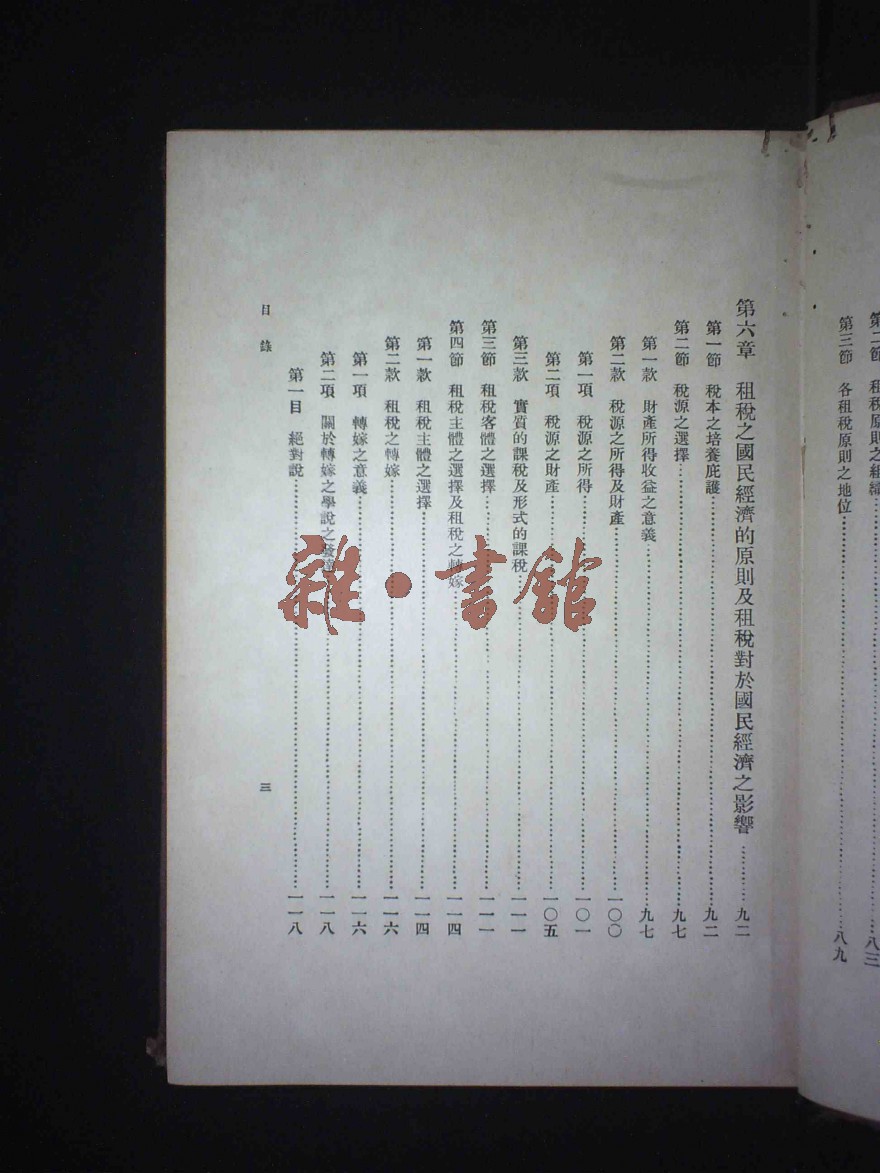 第二節 租稅原則之組織……八三
第三節 各租稅原則之地位……八九
第六章 租稅之國民經濟的原則及租稅對於國民經濟之影響……九二
第一節 稅本之培養庇護……九二
第二節 稅源之選擇……九七
第一款 財產所得收益之意義……九七
第二款 稅源之所得及財產……一〇〇
第一項 稅源之所得……一〇一
第二項 稅源之財產……一〇五
第三款 實質的課稅及形式的課稅……一一一
第三節 租稅客體之選擇……一一一
第四節 租稅主體之選擇及租稅之轉嫁……一一四
第一款 租稅主體之選擇……一一四
第二款 租稅之轉嫁……一一六
第一項 轉嫁之意義……一一六
第二項 關於轉嫁之學說之發達……一一八
第一目 絕對說……一一八
目錄
三
雜·書館